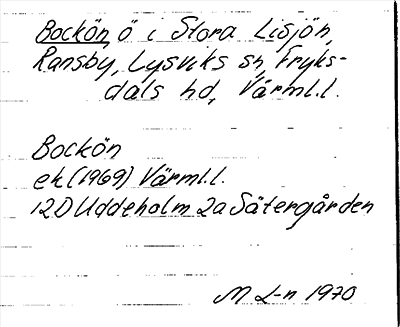 Bockön, ö i Stora Lisjön,
Ransby, Lysviks sn, Fryks-
dals hd, Värml.l.
Bockön
ek (1969) Värml.l.
12D Uddeholm 2a Sätergården
M L-n 1970